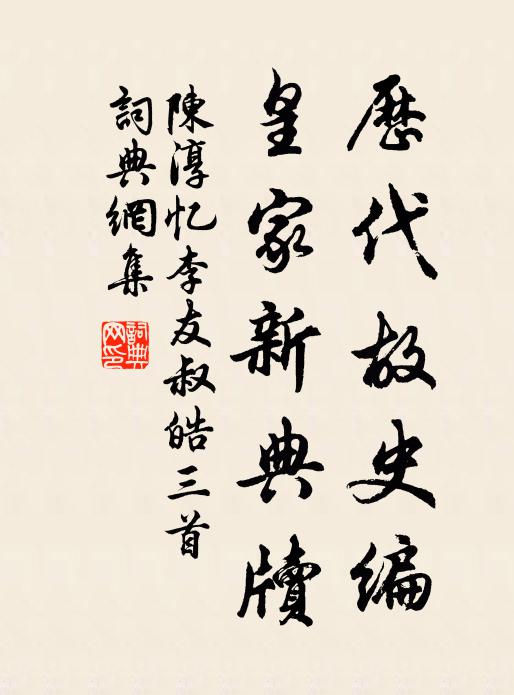 歷代故史編
皇家新典牘
陳淳忆李友叔皓三首
詞典網集
詞典網印